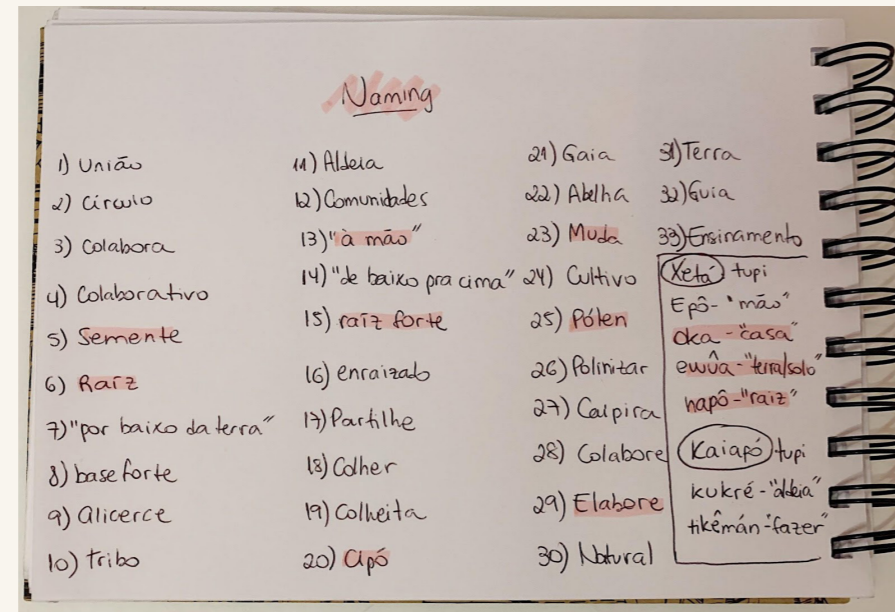 Naming
1) União
2) Círculo
3) Colabora
4) Colaborativo
5) Semente
6) Raíz
7) "por baixo da terra"
8) base forte
9) alicerce
10) tribo
11) Aldeia
12) Comunidades
13) "à mão"
14) "de baixo pra cima"
15) raíz forte
16) enraizado
17) Partilhe
18) Colher
19) Colheita
20) Cipó
21) Gaia
22) Abelha
23) Muda
24) Cultivo
25) Pólen
26) Polinizar
27) Caipira
28) Colabore
29) Elabore
30) Natural
31) Terra
32) Guia
33) Ensinamento
Xetá tupi
Epô - "mão"
oka - "casa"
ewûa - "terra/solo"
hapô - "raiz"
Kaiapó tupi
kukré - "aldeia"
tikêmán - "fazer"